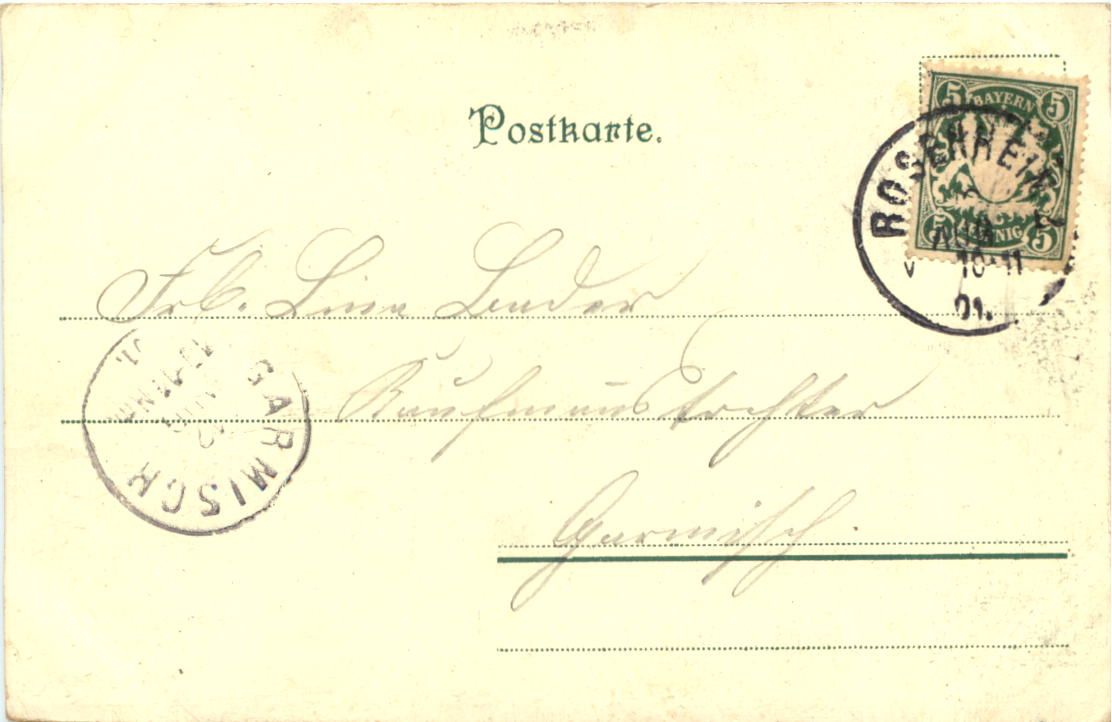 Postkarte.
5 BAYERN 5
5 PFENNIG 5
ROSENHEIM
10-11
01.
Frl. Lina Bader
Kaufmannstochter
Garmisch.
GARMISCH
01.